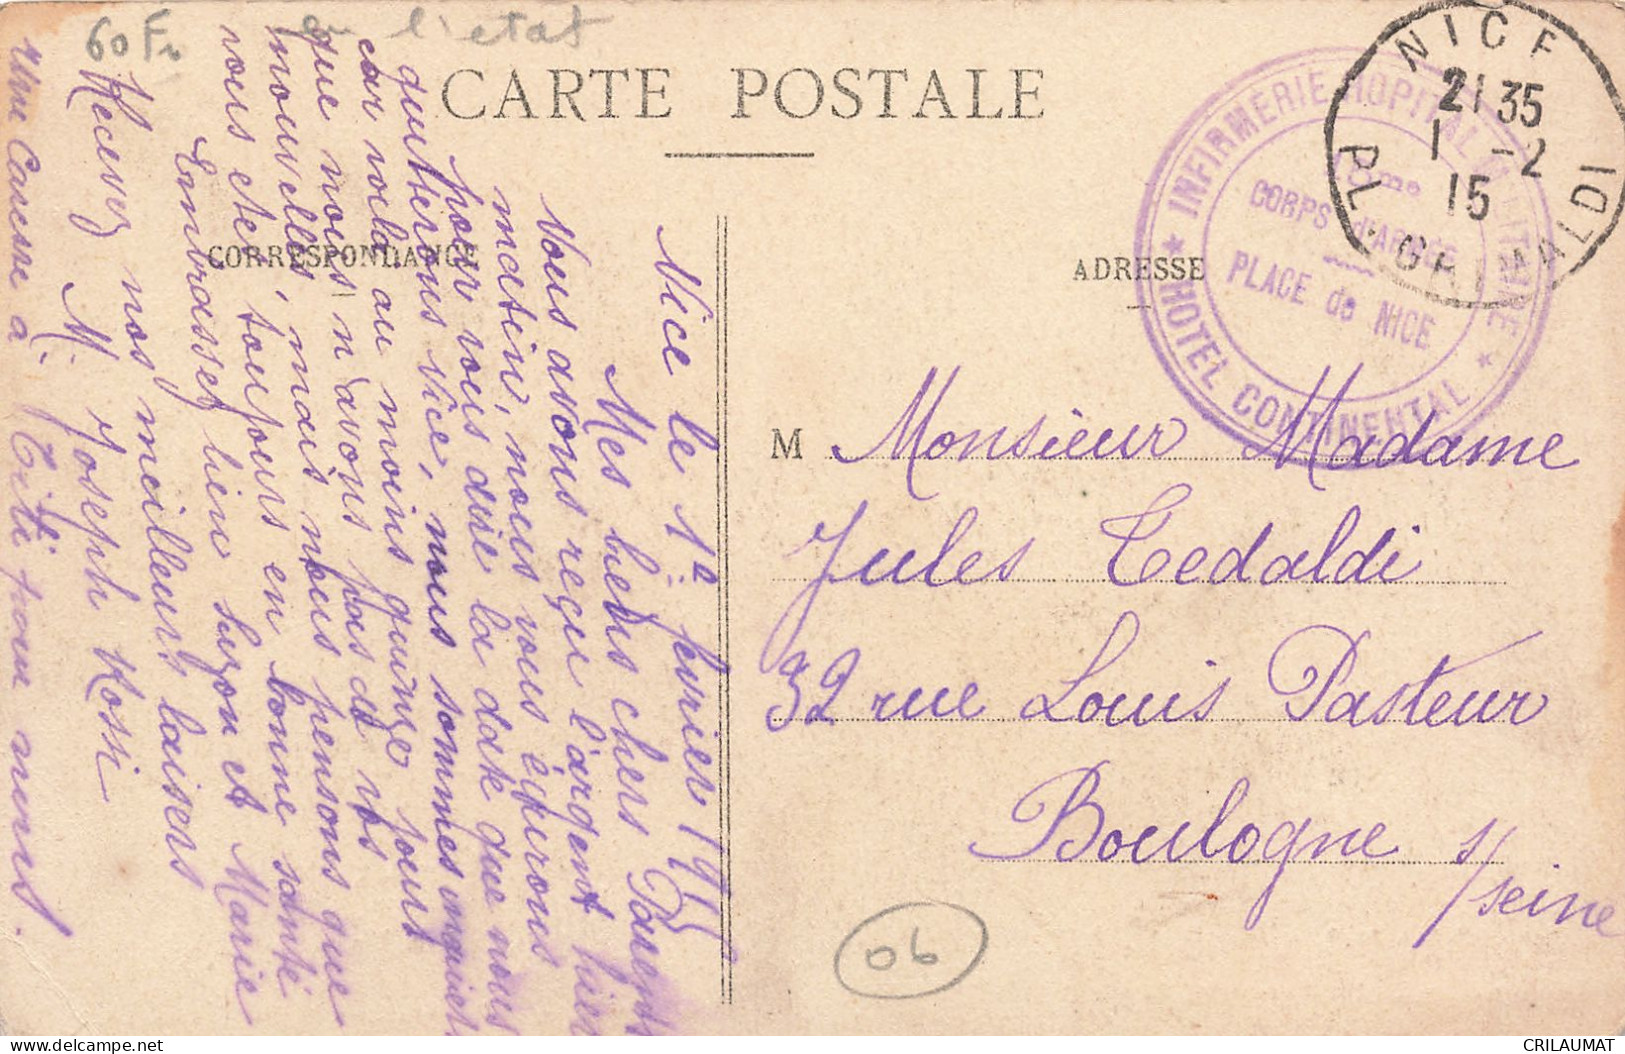 60 Fr l'etat
CARTE POSTALE
CORRESPONDANCE
ADRESSE
Nice le 1e fevrier 1915
Mes biens chers Parents
Vous avons reçu l'argent hier
matin, nous vous écrirons
pour vous dire la date que nous
quitterons Nice, nous sommes inquiets
car voilà au moins quinze jours
que nous n'avons pas de vos
nouvelles, mais nous pensons que
vous etes toujours en bonne santé
Embrassez bien Suzon et Marie
Recevez nos meilleurs baisers
M. Joseph Rossi
Une Caresse à Titi pour nous.
NICE
21 35
1 -2
15
PL. GRIMALDI
★ INFIRMERIE HOPITAL MILITAIRE ★
HOTEL CONTINENTAL
15eme
CORPS d'ARMÉE
PLACE de NICE
M Monsieur Madame
Jules Tedaldi
32 rue Louis Pasteur
Boulogne s/seine
06
CRILAUMAT